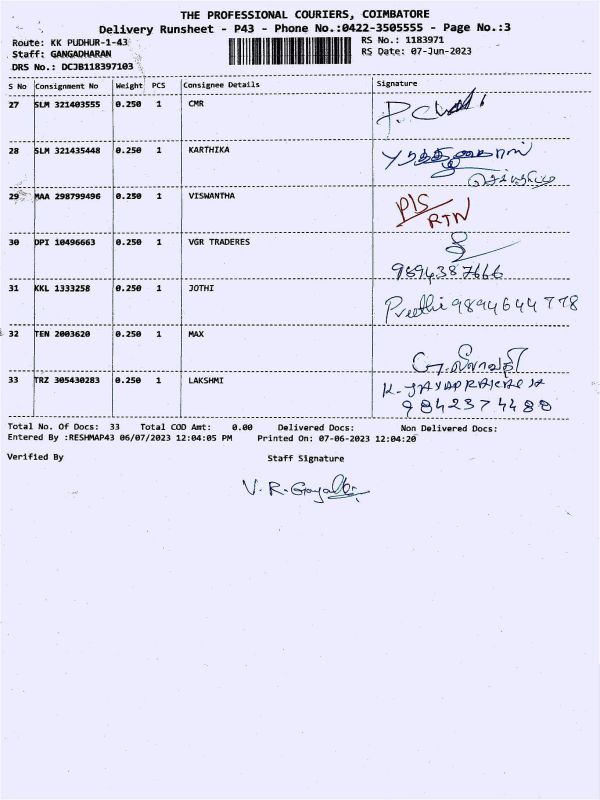 THE PROFESSIONAL COURIERS, COIMBATORE
Delivery Runsheet - P43 - Phone No.:0422-3505555 - Page No.:3
Route: KK PUDHUR-1-43 RS No.: 1183971
Staff: GANGADHARAN RS Date: 07-Jun-2023
DRS No.: DCJB118397103
S No Consignment No Weight PCS Consignee Details Signature
27 SLM 321403555 0.250 1 CMR
28 SLM 321435448 0.250 1 KARTHIKA
29 MAA 298799496 0.250 1 VISWANTHA P/S
RTN
30 DPI 10496663 0.250 1 VGR TRADERES
9894387666
31 KKL 1333258 0.250 1 JOTHI Preethi 9894644778
32 TEN 2003620 0.250 1 MAX
33 TRZ 305430283 0.250 1 LAKSHMI K. JAYAPRAKASH
9842374488
Total No. Of Docs: 33 Total COD Amt: 0.00 Delivered Docs: Non Delivered Docs:
Entered By :RESHMAP43 06/07/2023 12:04:05 PM Printed On: 07-06-2023 12:04:20
Verified By Staff Signature